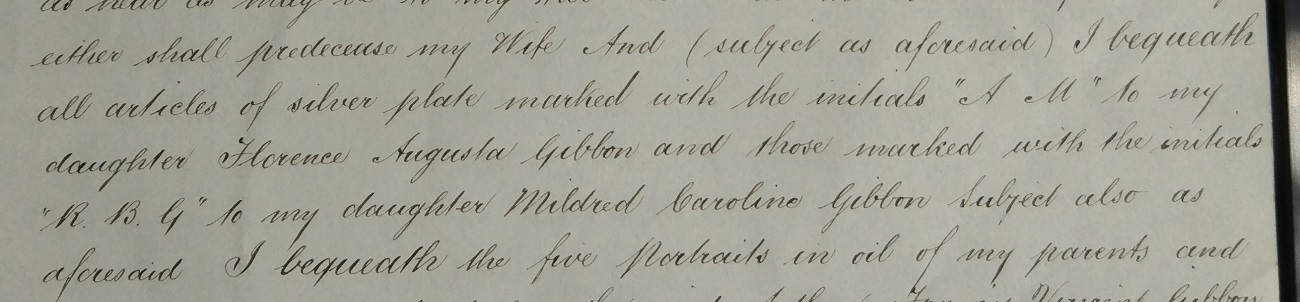 as near as may be to my
either shall predecease my Wife And (subject as aforesaid) I bequeath
all articles of silver plate marked with the initials "A M" to my
daughter Florence Augusta Gibbon and those marked with the initials
"R. B. G" to my daughter Mildred Caroline Gibbon Subject also as
aforesaid I bequeath the five Portraits in oil of my parents and
Vincent Gibbon